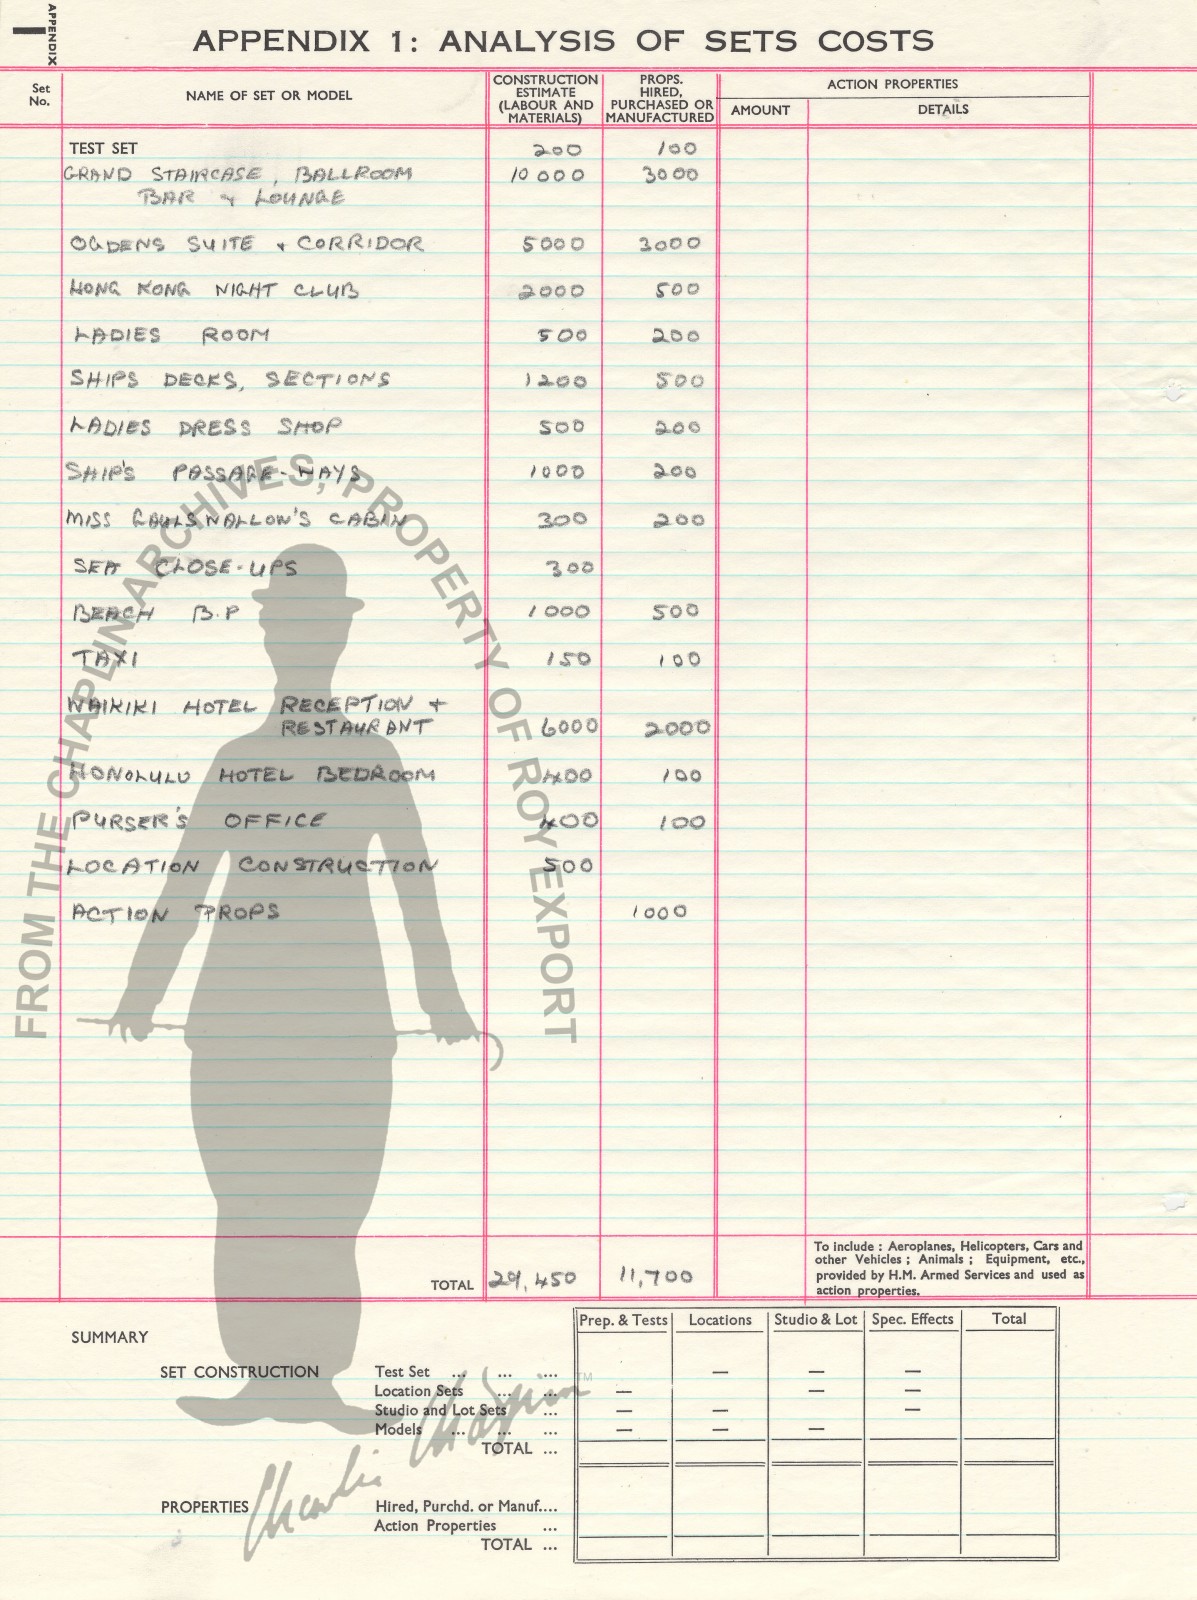 APPENDIX
1
APPENDIX 1: ANALYSIS OF SETS COSTS
Set No.
NAME OF SET OR MODEL
CONSTRUCTION ESTIMATE (LABOUR AND MATERIALS)
PROPS. HIRED, PURCHASED OR MANUFACTURED
ACTION PROPERTIES
AMOUNT
DETAILS
TEST SET 200 100
GRAND STAIRCASE, BALLROOM 10000 3000
BAR & LOUNGE
OGDENS SUITE & CORRIDOR 5000 3000
HONG KONG NIGHT CLUB 2000 500
LADIES ROOM 500 200
SHIPS DECKS, SECTIONS 1200 500
LADIES DRESS SHOP 500 200
SHIP'S PASSAGE-WAYS 1000 200
MISS GAULSWALLOW'S CABIN 300 200
SEA CLOSE-UPS 300
BEACH B.P 1000 500
TAXI 150 100
WAIKIKI HOTEL RECEPTION &
RESTAURANT 6000 2000
HONOLULU HOTEL BEDROOM 400 100
PURSER'S OFFICE 400 100
LOCATION CONSTRUCTION 500
ACTION PROPS 1000
TOTAL 29,450 11,700
To include : Aeroplanes, Helicopters, Cars and
other Vehicles ; Animals ; Equipment, etc.,
provided by H.M. Armed Services and used as
action properties.
SUMMARY
Prep. & Tests Locations Studio & Lot Spec. Effects Total
SET CONSTRUCTION Test Set ... ... ... — — —
Location Sets ... ... — — —
Studio and Lot Sets ... — — —
Models ... ... ... — — —
TOTAL ...
PROPERTIES Hired, Purchd. or Manuf....
Action Properties ...
TOTAL ...
FROM THE CHAPLIN ARCHIVES, PROPERTY OF ROY EXPORT
Charlie Chaplin TM